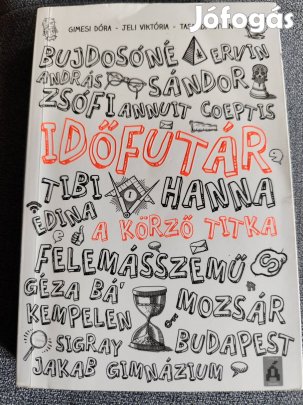 Jófogás
GIMESI DÓRA - JELI VIKTÓRIA - TAS
BUJDOSÓNÉ ERVIN
ANDRÁS SÁNDOR
ZSÓFI ANNUIT COEPTIS
IDŐFUTÁR
TIBI HANNA
EDINA A KÖRZŐ TITKA
FELEMÁSSZEMŰ
GÉZA BÁ'
KEMPELEN MOZSÁR
SIGRAY BUDAPEST
JAKAB GIMNÁZIUM